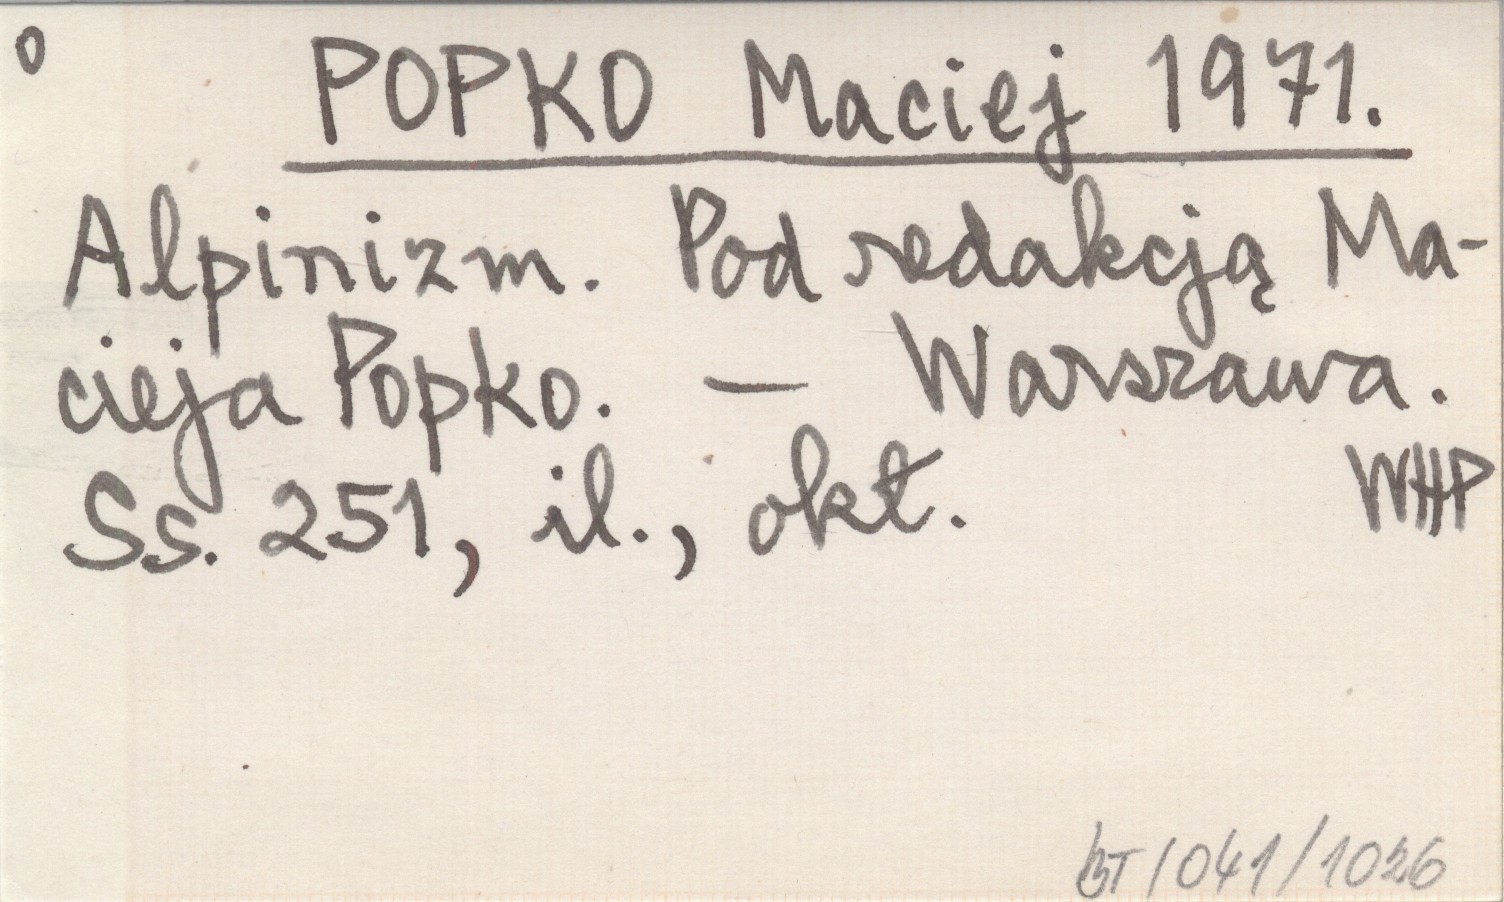 o
POPKO Maciej 1971.
Alpinizm. Pod redakcją Ma-
cieja Popko. — Warszawa.
Ss. 251, il., okł.
WHP
BT/041/1026